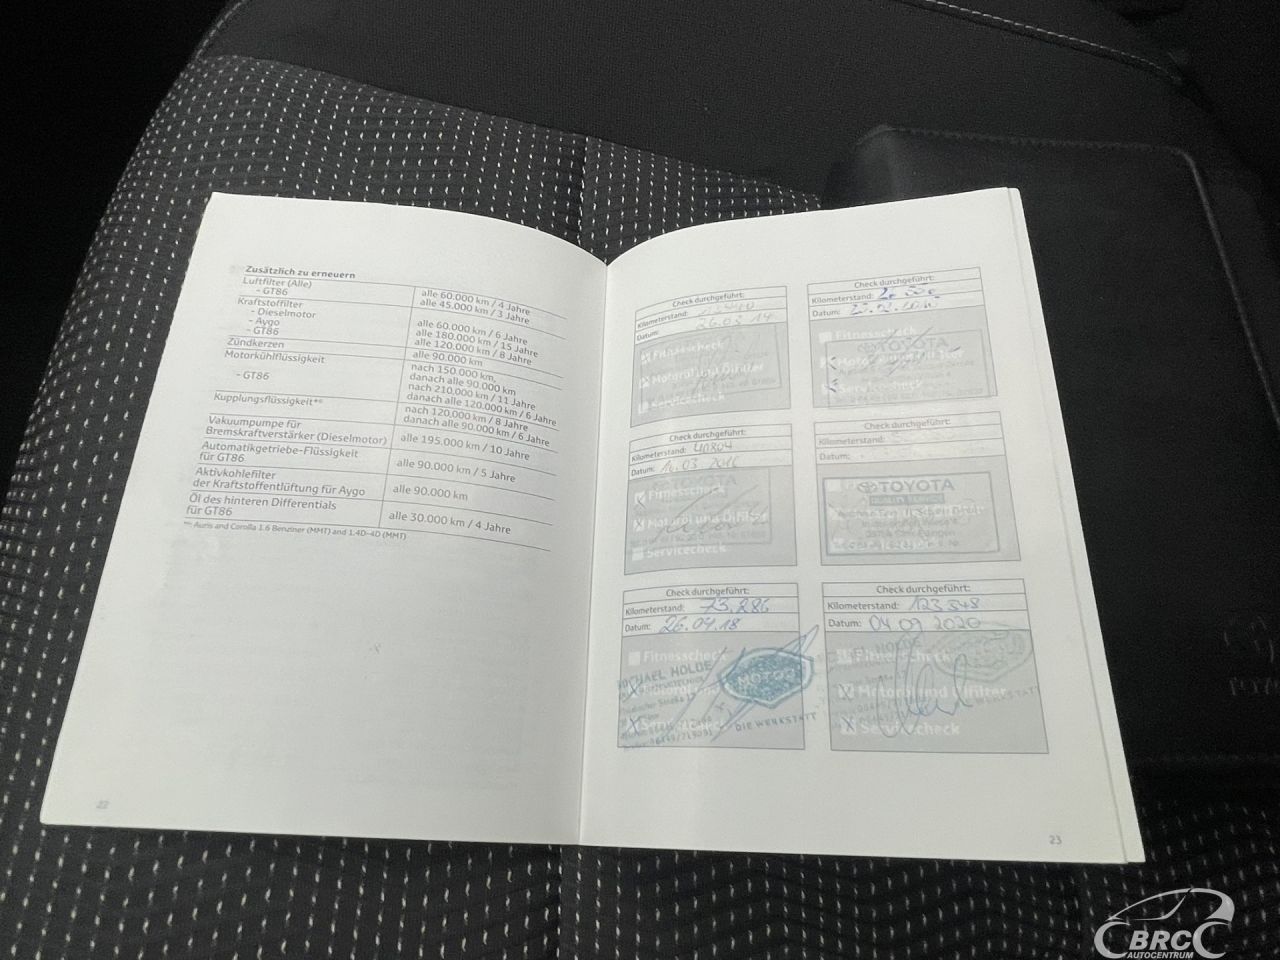 Zusätzlich zu erneuern
Luftfilter (Alle) alle 60.000 km / 4 Jahre
- GT86 alle 45.000 km / 3 Jahre
Kraftstofffilter
- Dieselmotor alle 60.000 km / 6 Jahre
- Aygo alle 180.000 km / 15 Jahre
- GT86 alle 120.000 km / 8 Jahre
Zündkerzen alle 90.000 km
Motorkühlflüssigkeit nach 150.000 km,
danach alle 90.000 km
- GT86 nach 210.000 km / 11 Jahre
danach alle 120.000 km / 6 Jahre
Kupplungsflüssigkeit nach 120.000 km / 8 Jahre
danach alle 90.000 km / 6 Jahre
Vakuumpumpe für
Bremskraftverstärker (Dieselmotor) alle 195.000 km / 10 Jahre
Automatikgetriebe-Flüssigkeit
für GT86 alle 90.000 km / 5 Jahre
Aktivkohlefilter
der Kraftstoffentlüftung für Aygo alle 90.000 km
Öl des hinteren Differentials
für GT86 alle 30.000 km / 4 Jahre
Auris and Corolla 1.6 Benziner (MMT) and 1.4D-4D (MMT)
22
Check durchgeführt:
Kilometerstand:
Datum: 26.03.14
Fitnesscheck
Motoröl und Ölfilter
Servicecheck
Check durchgeführt:
Kilometerstand:
Datum:
Fitnesscheck
TOYOTA
Motoröl und Ölfilter
Servicecheck
Check durchgeführt:
Kilometerstand: 40804
Datum: 16.03.2016
Fitnesscheck
Motoröl und Ölfilter
Servicecheck
Check durchgeführt:
Kilometerstand:
Datum:
TOYOTA
Check durchgeführt:
Kilometerstand: 73.286
Datum: 26.04.18
Fitnesscheck
MICHAEL HOLDE
MOTOO
Motoröl und
Servicecheck
DIE WERKSTATT
Check durchgeführt:
Kilometerstand: 123 548
Datum: 04 09 2020
Fitnesscheck
Motoröl und Ölfilter
WERKSTATT
Servicecheck
23
BRC
AUTOCENTRUM